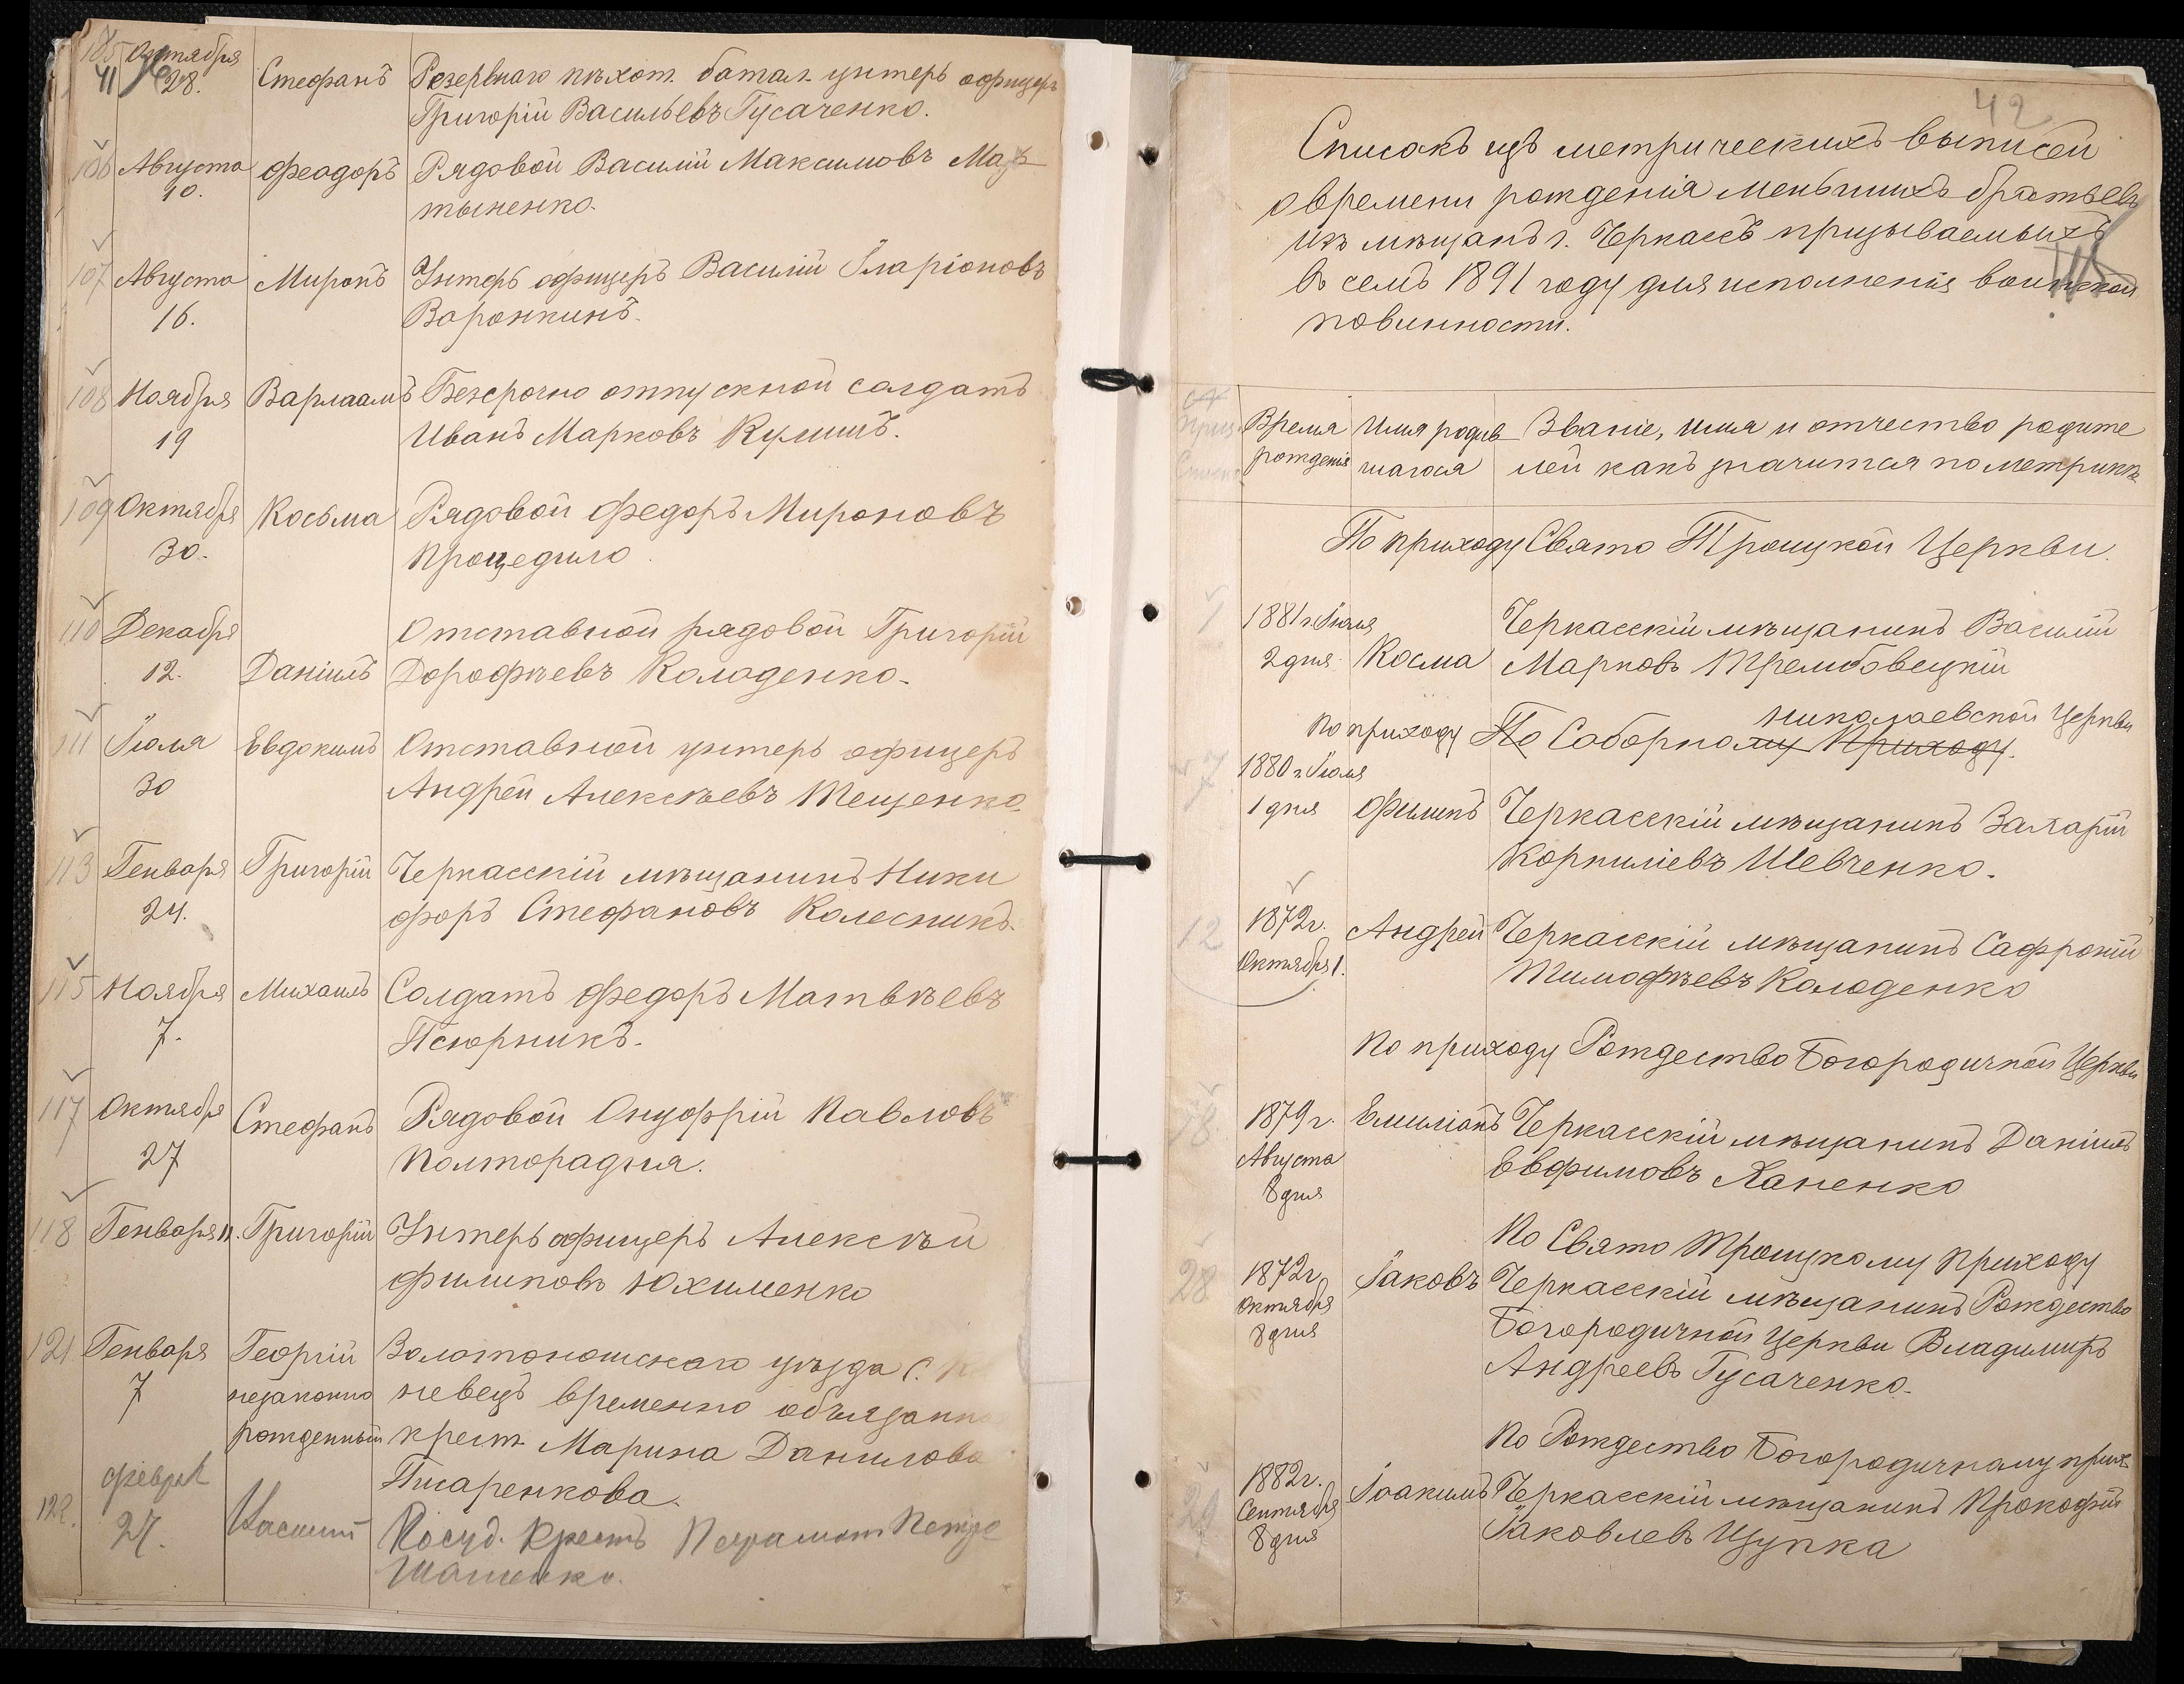 105 Октября Стефанъ Резервнаго пѣхот. батал. унтеръ офицеръ
41 28. Григорій Васильевъ Гусаченко.
106 Августа Феодоръ Рядовой Василій Максимовъ
10. тыненко.
107 Августа Миронъ Унтеръ офицеръ Василій Іларіоновъ
16. Воронкинъ.
108 Ноября Варлаамъ Безсрочно отпускной солдатъ
19 Иванъ Марковъ Кулишъ.
109 Октября Косьма Рядовой Федоръ Мироновъ
30. Процедило
110 Декабря Отставной рядовой Григорій
12. Даніилъ Дорофѣевъ Колоденко.
111 Іюля Евдокимъ Отставной унтеръ офицеръ
30 Андрей Алексѣевъ Тещенко.
113 Генваря Григорій Черкасскій мѣщанинъ Ники
24. форъ Стефановъ Колесникъ.
115 Ноября Михаилъ Солдатъ Федоръ Матвѣевъ
7. Псюрникъ.
117 Октября Стефанъ Рядовой Онуфрій Павловъ
27 Полторадня.
118 Генваря 11. Григорій Унтеръ офицеръ Алексѣй
Филиповъ Юхименко
121 Генваря Георгій Золотоношскаго уѣзда С.
7 незаконно невецъ временно обязанно
рожденный крест. Марина Данилова
Писаренкова.
122. Феврал Касиян
27. Шашенко.
42
Списокъ изъ метрическихъ выписей
о времени рожденія меньшихъ братьевъ
изъ мѣщанъ г. Черкассъ призываемыхъ
въ семъ 1891 году для исполненія воинской
повинности.
Время Имя родив Званіе, имя и отчество родите
рожденія шагося лей какъ значится по метрикѣ
По приходу Свято Троицкой Церкви.
1 1881 г. Іюля Черкасскій мѣщанинъ Василій
2 дня Косма Марковъ Трембовецкій
Николаевской Церкви
По приходу По Соборному Приходу.
7 1880 г. Іюля
1 дня Филипъ Черкасскій мѣщанинъ Захарій
Корниліевъ Шевченко.
12 1872 г. Андрей Черкасскій мѣщанинъ Сафроній
Октября 1. Тимофѣевъ Колоденко
По приходу Рождество Богородичной Церкви
18 1879 г. Емиліанъ Черкасскій мѣщанинъ Даніилъ
Августа Евфимовъ Ханенко
8 дня
По Свято Троицкому Приходу
28 1872 г. Іаковъ Черкасскій мѣщанинъ Рождество
Октября Богородичной Церкви Владимиръ
8 дня Андреевъ Гусаченко.
По Рождество Богородичному прих.
29 1882 г. Іоакимъ Черкасскій мѣщанинъ Прокофій
Сентября Іаковлевъ Цупка
8 дня